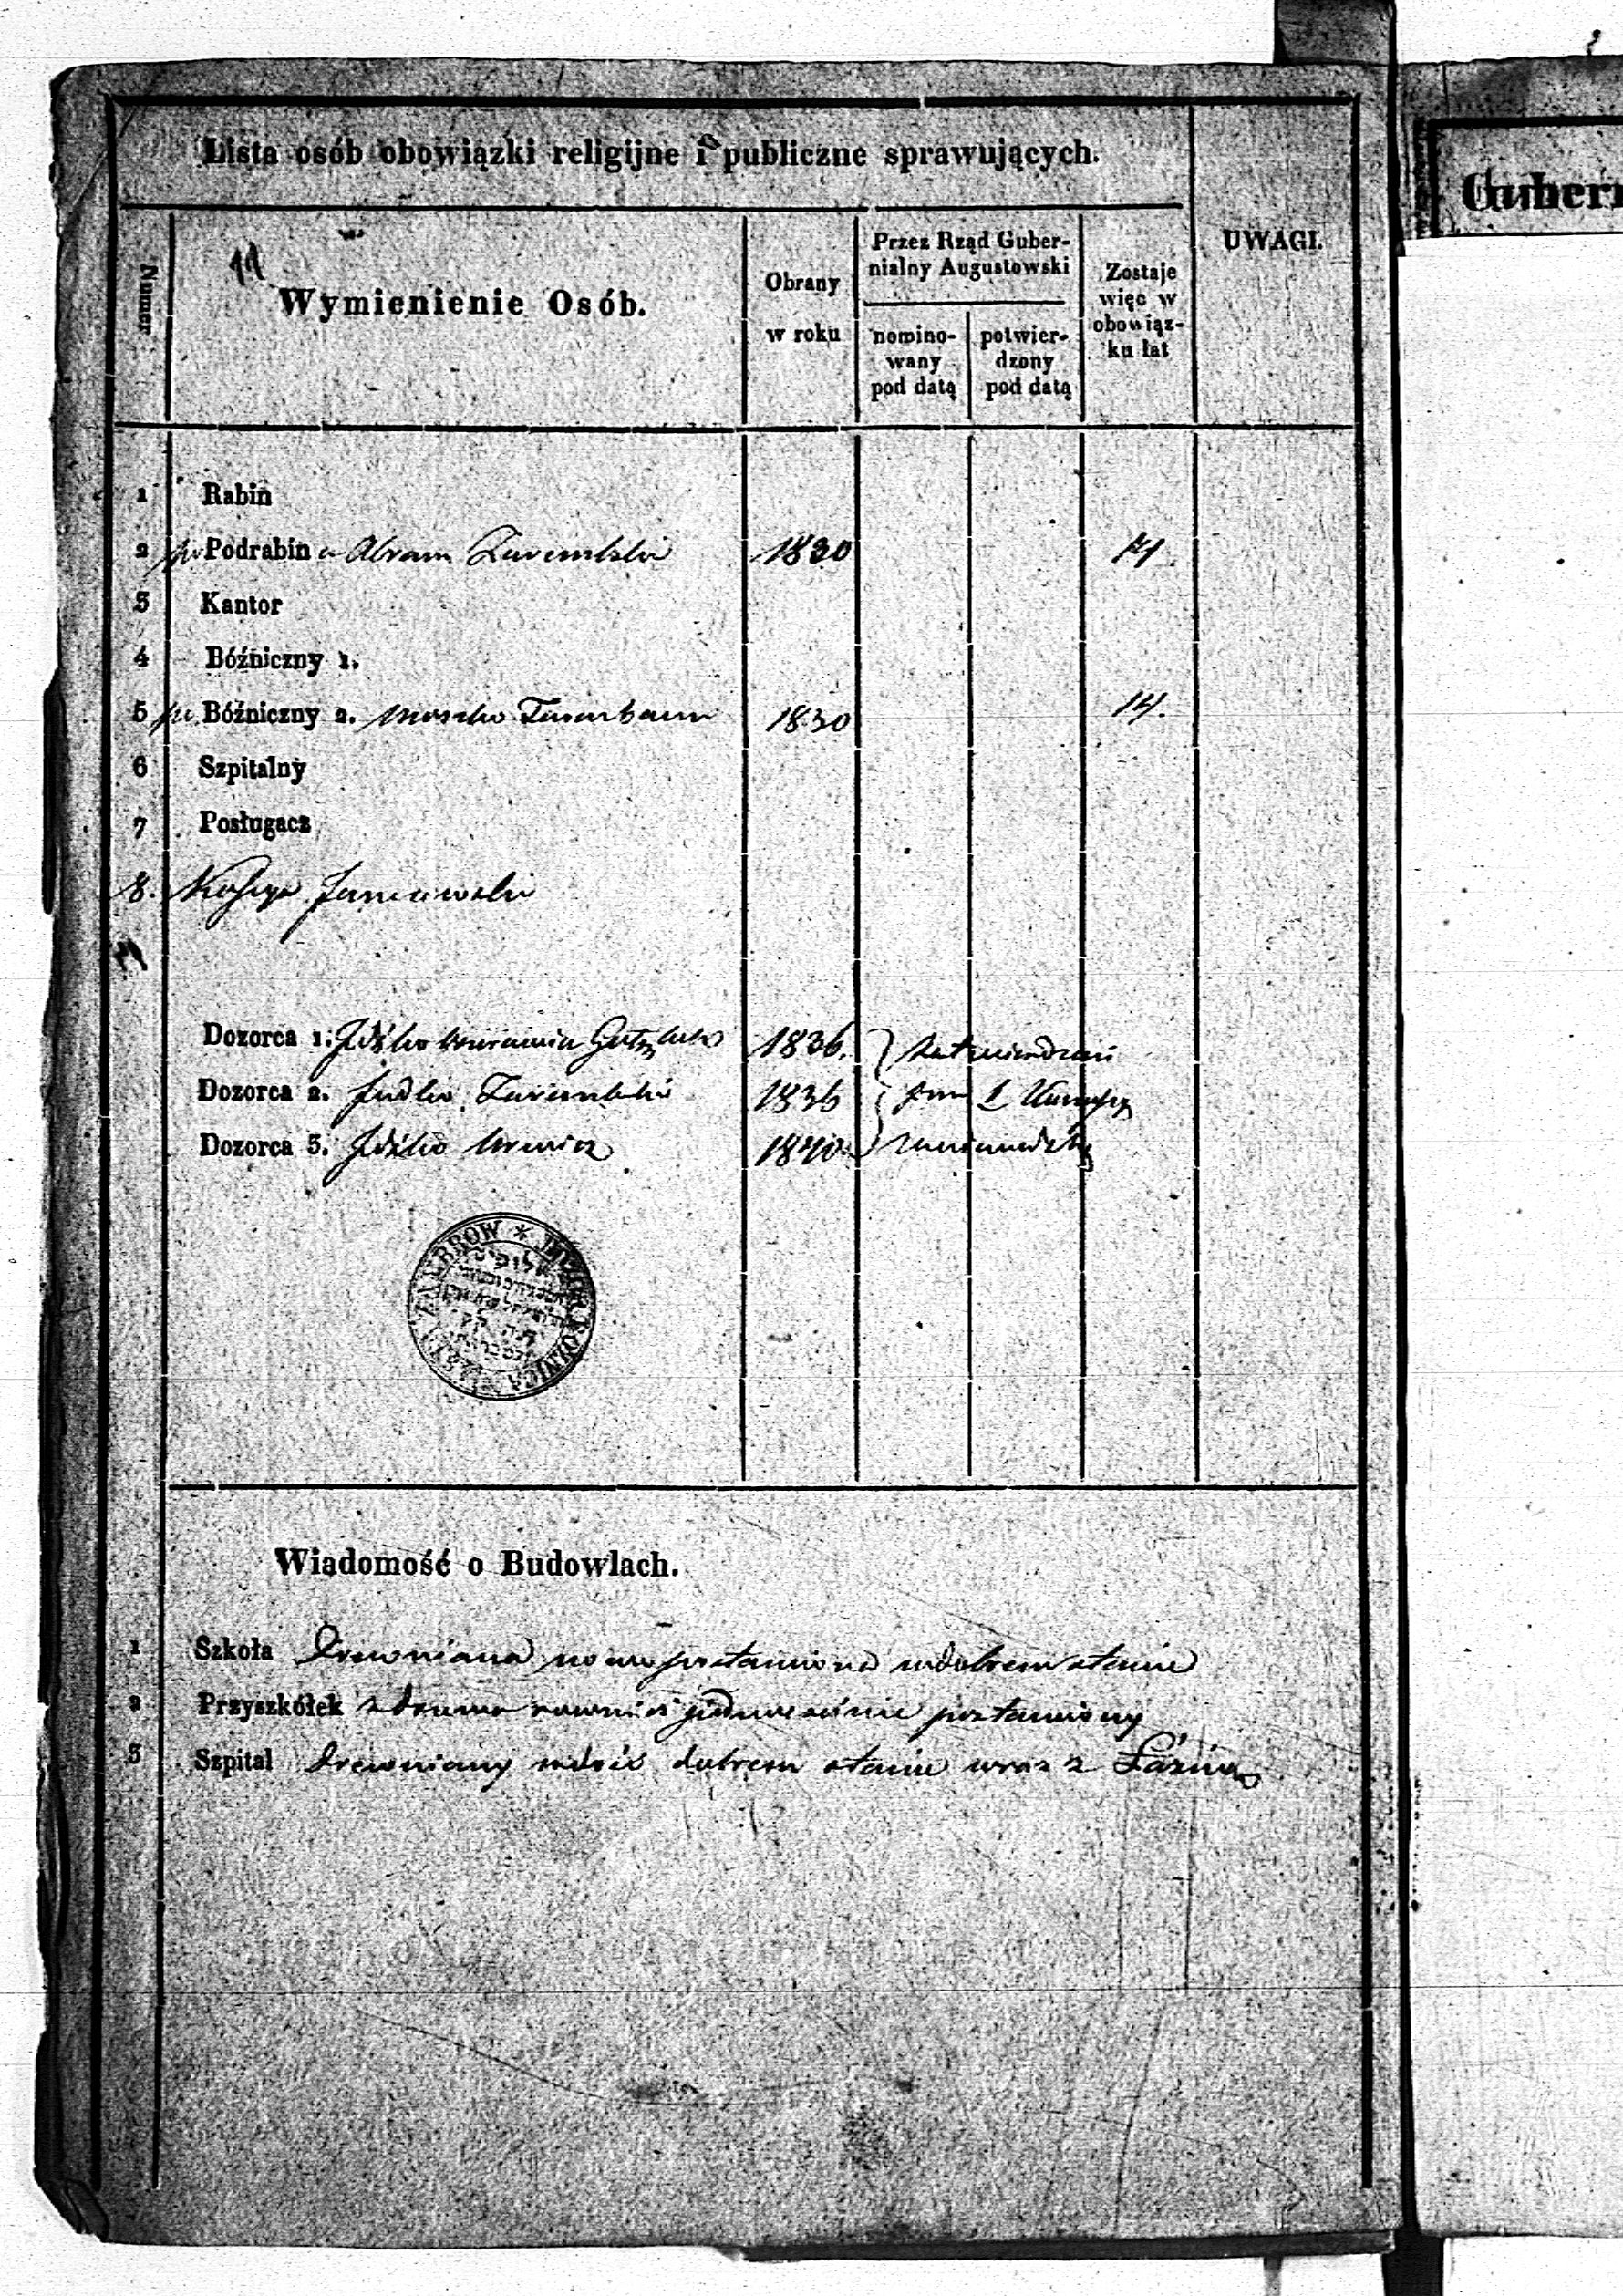 Lista osób obowiązki religijne i publiczne sprawujących.
Guber
Numer
11
Wymienienie Osób.
Obrany
w roku
Przez Rząd Guber-
nialny Augustowski
nomino-
wany
pod datą
potwier-
dzony
pod datą
Zostaje
więc w
obowiąz-
ku lat
UWAGI.
1 Rabin
2 Podrabin Abram Zarembski 1830 14.
3 Kantor
4 Bóźniczny 1.
5 Bóźniczny 2. Moszko 1830 14.
6 Szpitalny
7 Posługacz
8.
Dozorca 1. Idźko 1836.
Dozorca 2. Judko Zarembski 1836
Dozorca 3. Idźko 1840.
Wiadomość o Budowlach.
1 Szkoła Drewniana nowo postawiona w dobrem stanie
2 Przyszkółek z drzewa również jednocześnie postawiony
3 Szpital Drewniany dobrem stanie wraz z Łaźnią